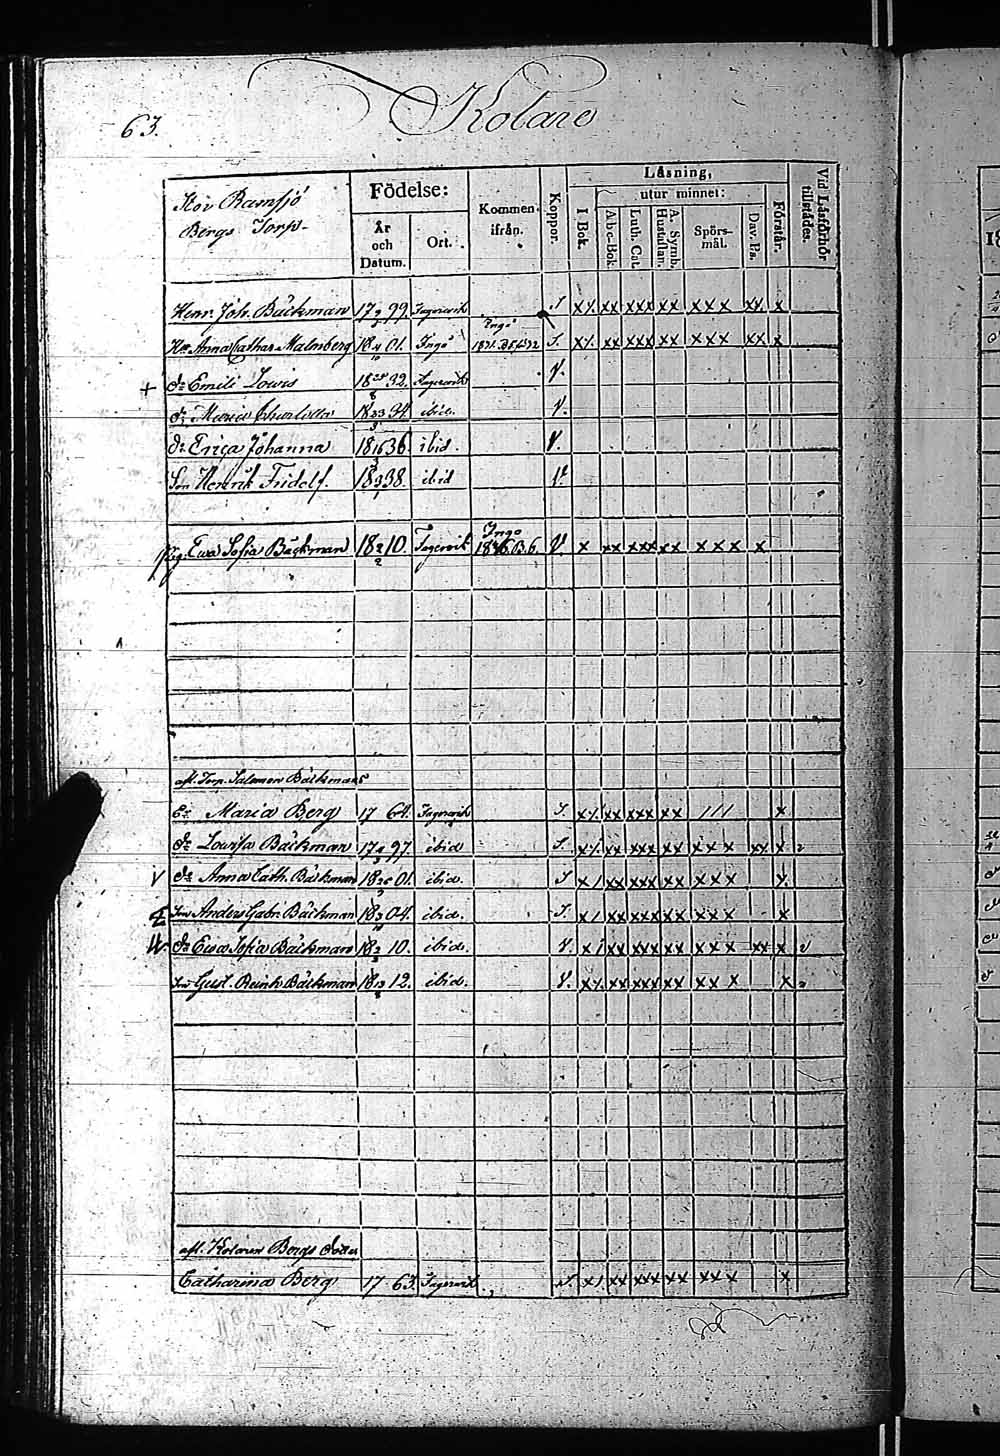 63.
Kolare
Stor Ramsjö
Bergs Torp.
Födelse:
År och Datum.
Ort.
Kommen ifrån.
Koppor.
Läsning,
I Bok.
utur minnet:
Abc-Bok.
Luth. Cat.
A. Symb. Hustaflan.
Spörs-mål.
Dav. Ps.
Förstår.
Vid Läsförhör tillstädes.
Henr. Joh. Bäckman 17 99. Fagervik S x x xx xxx xx xxx xx x
Anna Cathar. Malmberg 18 01. Ingå Ingå S. x x xx xxx xx xxx xx x
+ dr Emili Lowis 18 32. Fagervik V.
dr Maria Charlotta 18 34. ibid. V.
dr Erica Johanna 18 36. ibid. V.
Son Henrik Fridolf. 18 38. ibid V.
Pig. Ewa Sofia Bäckman 18 10. Fagervik Ingå V. x xx xxx xx xxx x
afl. Torp. Salomon Bäckmans
Maria Berg 17 64. Fagervik S. x x xx xxx xx /// x
dr Lowisa Bäckman 17 97. ibid S. x x xx xxx xx xxx xx x
V dr Anna Cath. Bäckman 18 01. ibid. S x / xx xxx xx xxx x
Son Anders Gabr. Bäckman 18 04. ibid. S. x / xx xxx xx xxx x
dr Ewa Sofia Bäckman 18 10. ibid. V. x / xx xxx xx xxx xx x
Son Gust. Reinh. Bäckman 18 12. ibid. V. x x xx xxx xx xxx x
afl. Kolaren Bergs dotter
Catharina Berg 17 63. Fagervik S. x / xx xxx xx xxx x